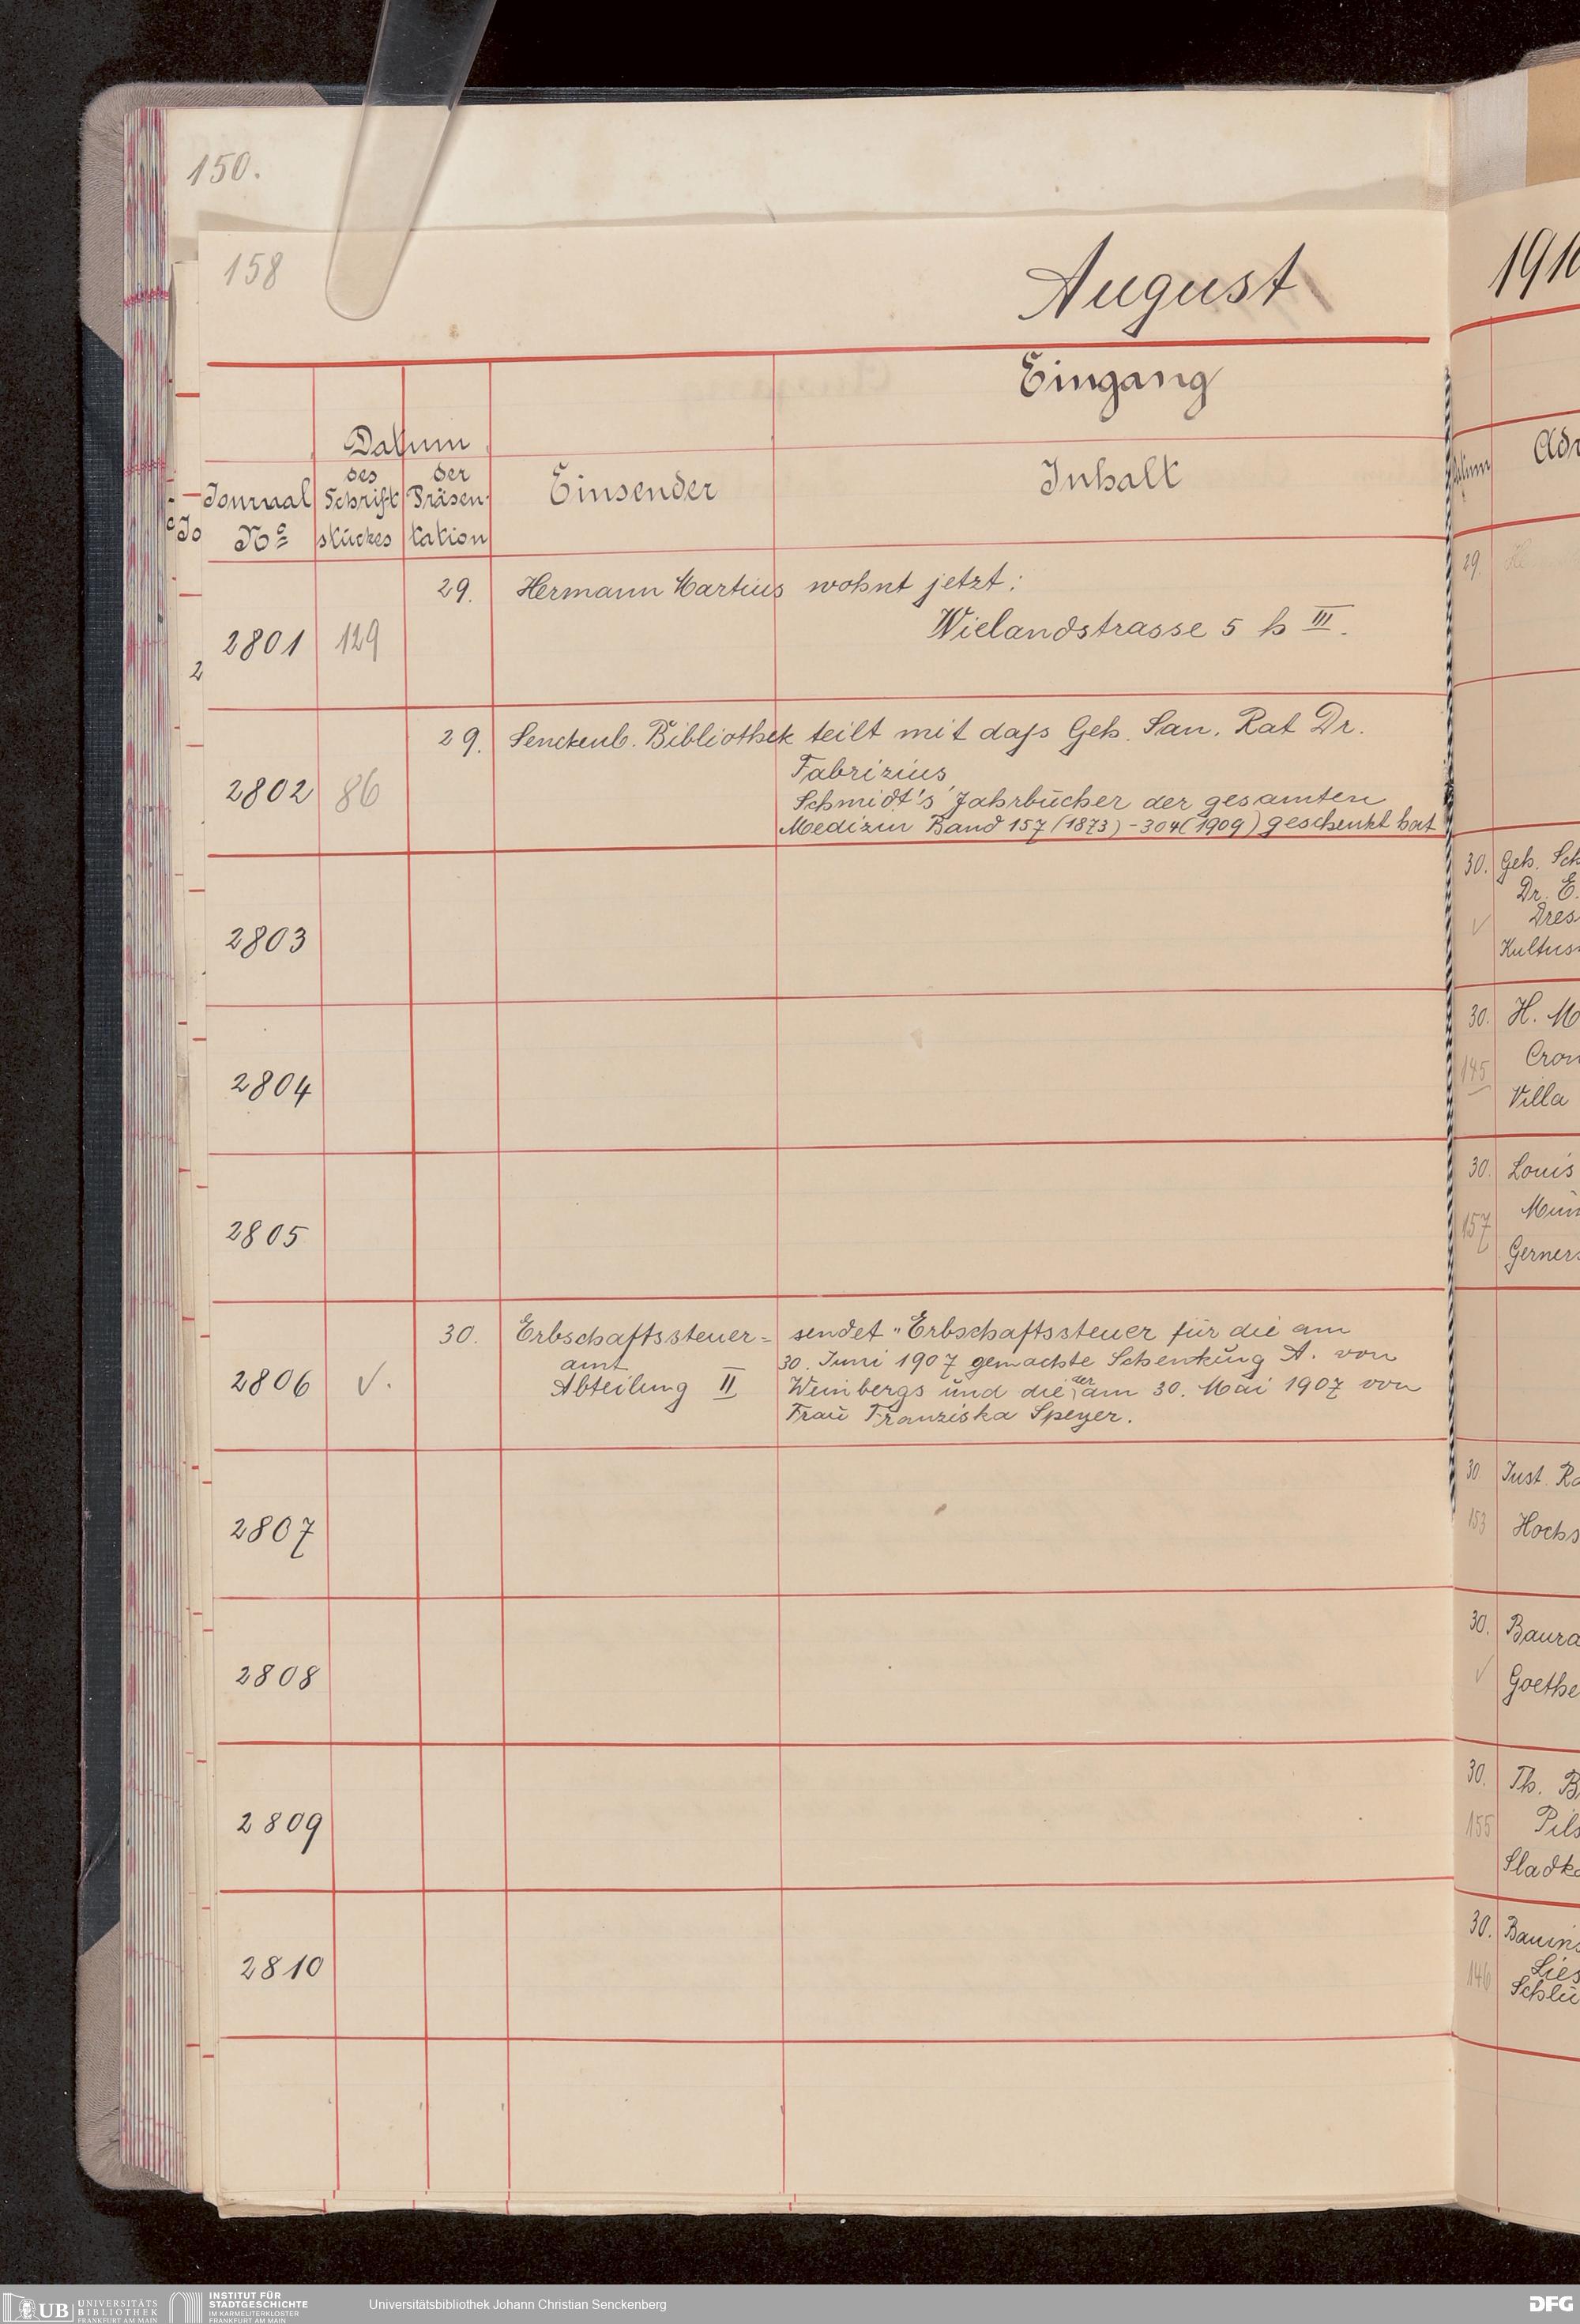 150.
158
August
1910
Eingang
Datum
des
Schrift
stückes
der
Präsen-
tation
Journal
Nº
Einsender
Inhalt
Datum
Adr
2801
129
29.
Hermann Martius wohnt jetzt:
Wielandstrasse 5 h III.
2802
86
29.
Senckenb. Bibliothek teilt mit daſs Geh. San. Rat Dr.
Fabrizius
Schmidt's Jahrbücher der gesamten
Medizin Band 157 (1873) - 304 (1909) geschenkt hat
2803
2804
2805
2806
√.
30.
Erbschaftssteuer=
amt
Abteilung II
sendet „Erbschaftssteuer für die am
30. Juni 1907 gemachte Schenkung A. von
Weinbergs und die der am 30. Mai 1907 von
Frau Franziska Speyer.
2807
2808
2809
2810
29.
30. Geh. Sch
Dr. E.
√ Dres
Kultus
30. H. M
Cron
145
Villa
30. Louis
Mün
157
Gerners
30 Just. Ra
153 Hochs
30. Baura
√ Goethe
30. Th. B
155 Pils
Sladk
30. Bauins
146 Lies
Schlü
UB UNIVERSITÄTS
BIBLIOTHEK
FRANKFURT AM MAIN
INSTITUT FÜR
STADTGESCHICHTE
IM KARMELITERKLOSTER
FRANKFURT AM MAIN
Universitätsbibliothek Johann Christian Senckenberg
DFG